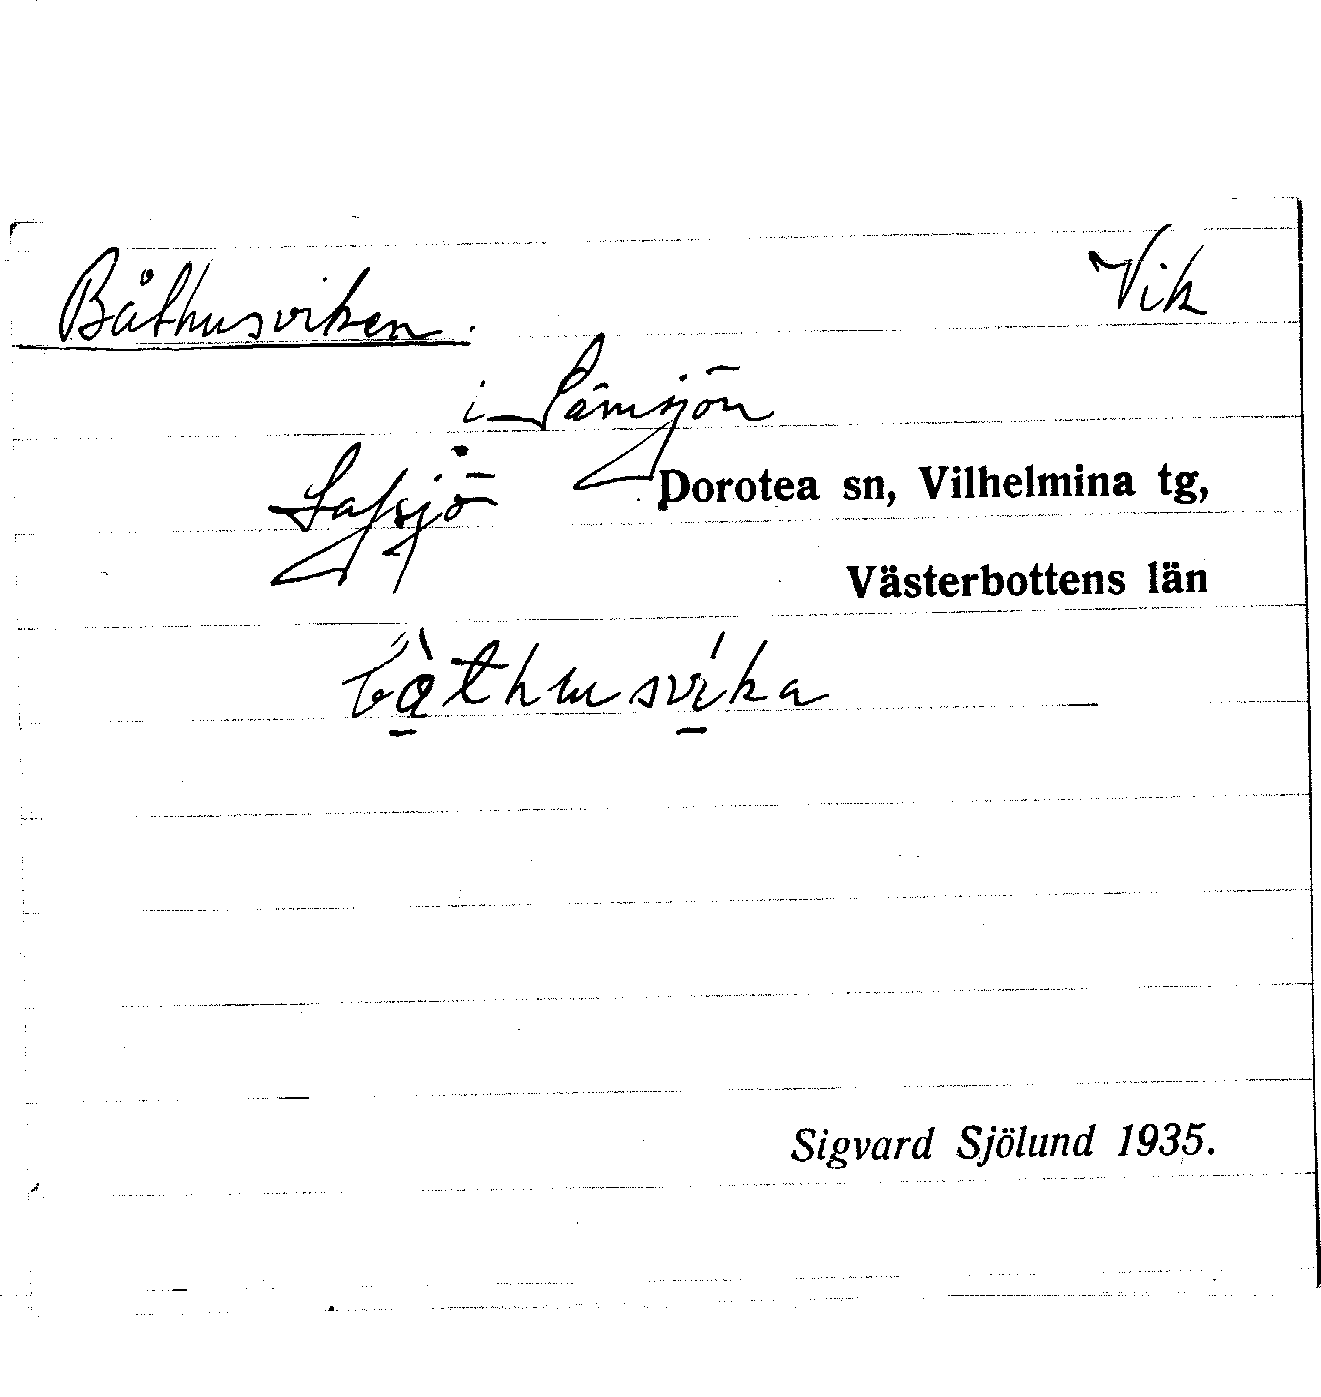 Båthusviken. Vik
i Sämsjön
Lafsjö Dorotea sn, Vilhelmina tg,
Västerbottens län
bà̱thusví̱ka
Sigvard Sjölund 1935.